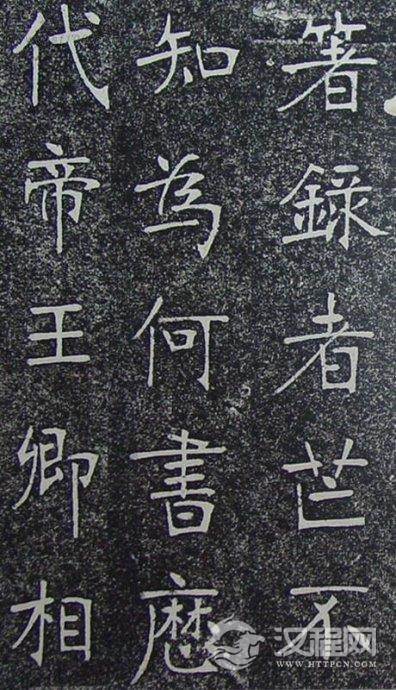 箸錄者芒不
知為何書歷
代帝王卿相
汉程网
WWW.HTTPCN.COM